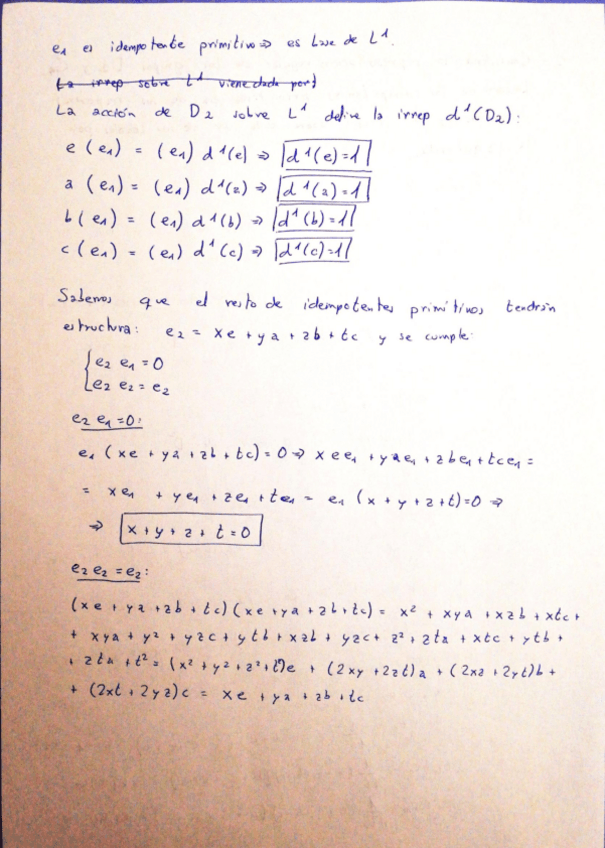 e₁ es idempotente primitivo ⇒ es base de L¹.
(La irrep sobre L¹ viene dada por)
La acción de D₂ sobre L¹ define la irrep d¹(D₂):
e (e₁) = (e₁) d¹(e) ⇒ |d¹(e)=1|
a (e₁) = (e₁) d¹(a) ⇒ |d¹(a)=1|
b (e₁) = (e₁) d¹(b) ⇒ |d¹(b)=1|
c (e₁) = (e₁) d¹(c) ⇒ |d¹(c)=1|
Sabemos que el resto de idempotentes primitivos tendrán
estructura: e₂ = xe + ya + zb + tc y se cumple:
{ e₂ e₁ = 0
e₂ e₂ = e₂
e₂ e₁ = 0:
e₁ (xe + ya + zb + tc) = 0 ⇒ x e e₁ + y a e₁ + z b e₁ + t c e₁ =
= xe₁ + ye₁ + ze₁ + te₁ = e₁ (x + y + z + t) = 0 ⇒
⇒ x + y + z + t = 0
e₂ e₂ = e₂:
(xe + ya + zb + tc)(xe + ya + zb + tc) = x² + xya + xzb + xtc +
+ xya + y² + yzc + ytb + xzb + yzc + z² + zta + xtc + ytb +
+ zta + t² = (x² + y² + z² + t²)e + (2xy + 2zt)a + (2xz + 2yt)b +
+ (2xt + 2yz)c = xe + ya + zb + tc